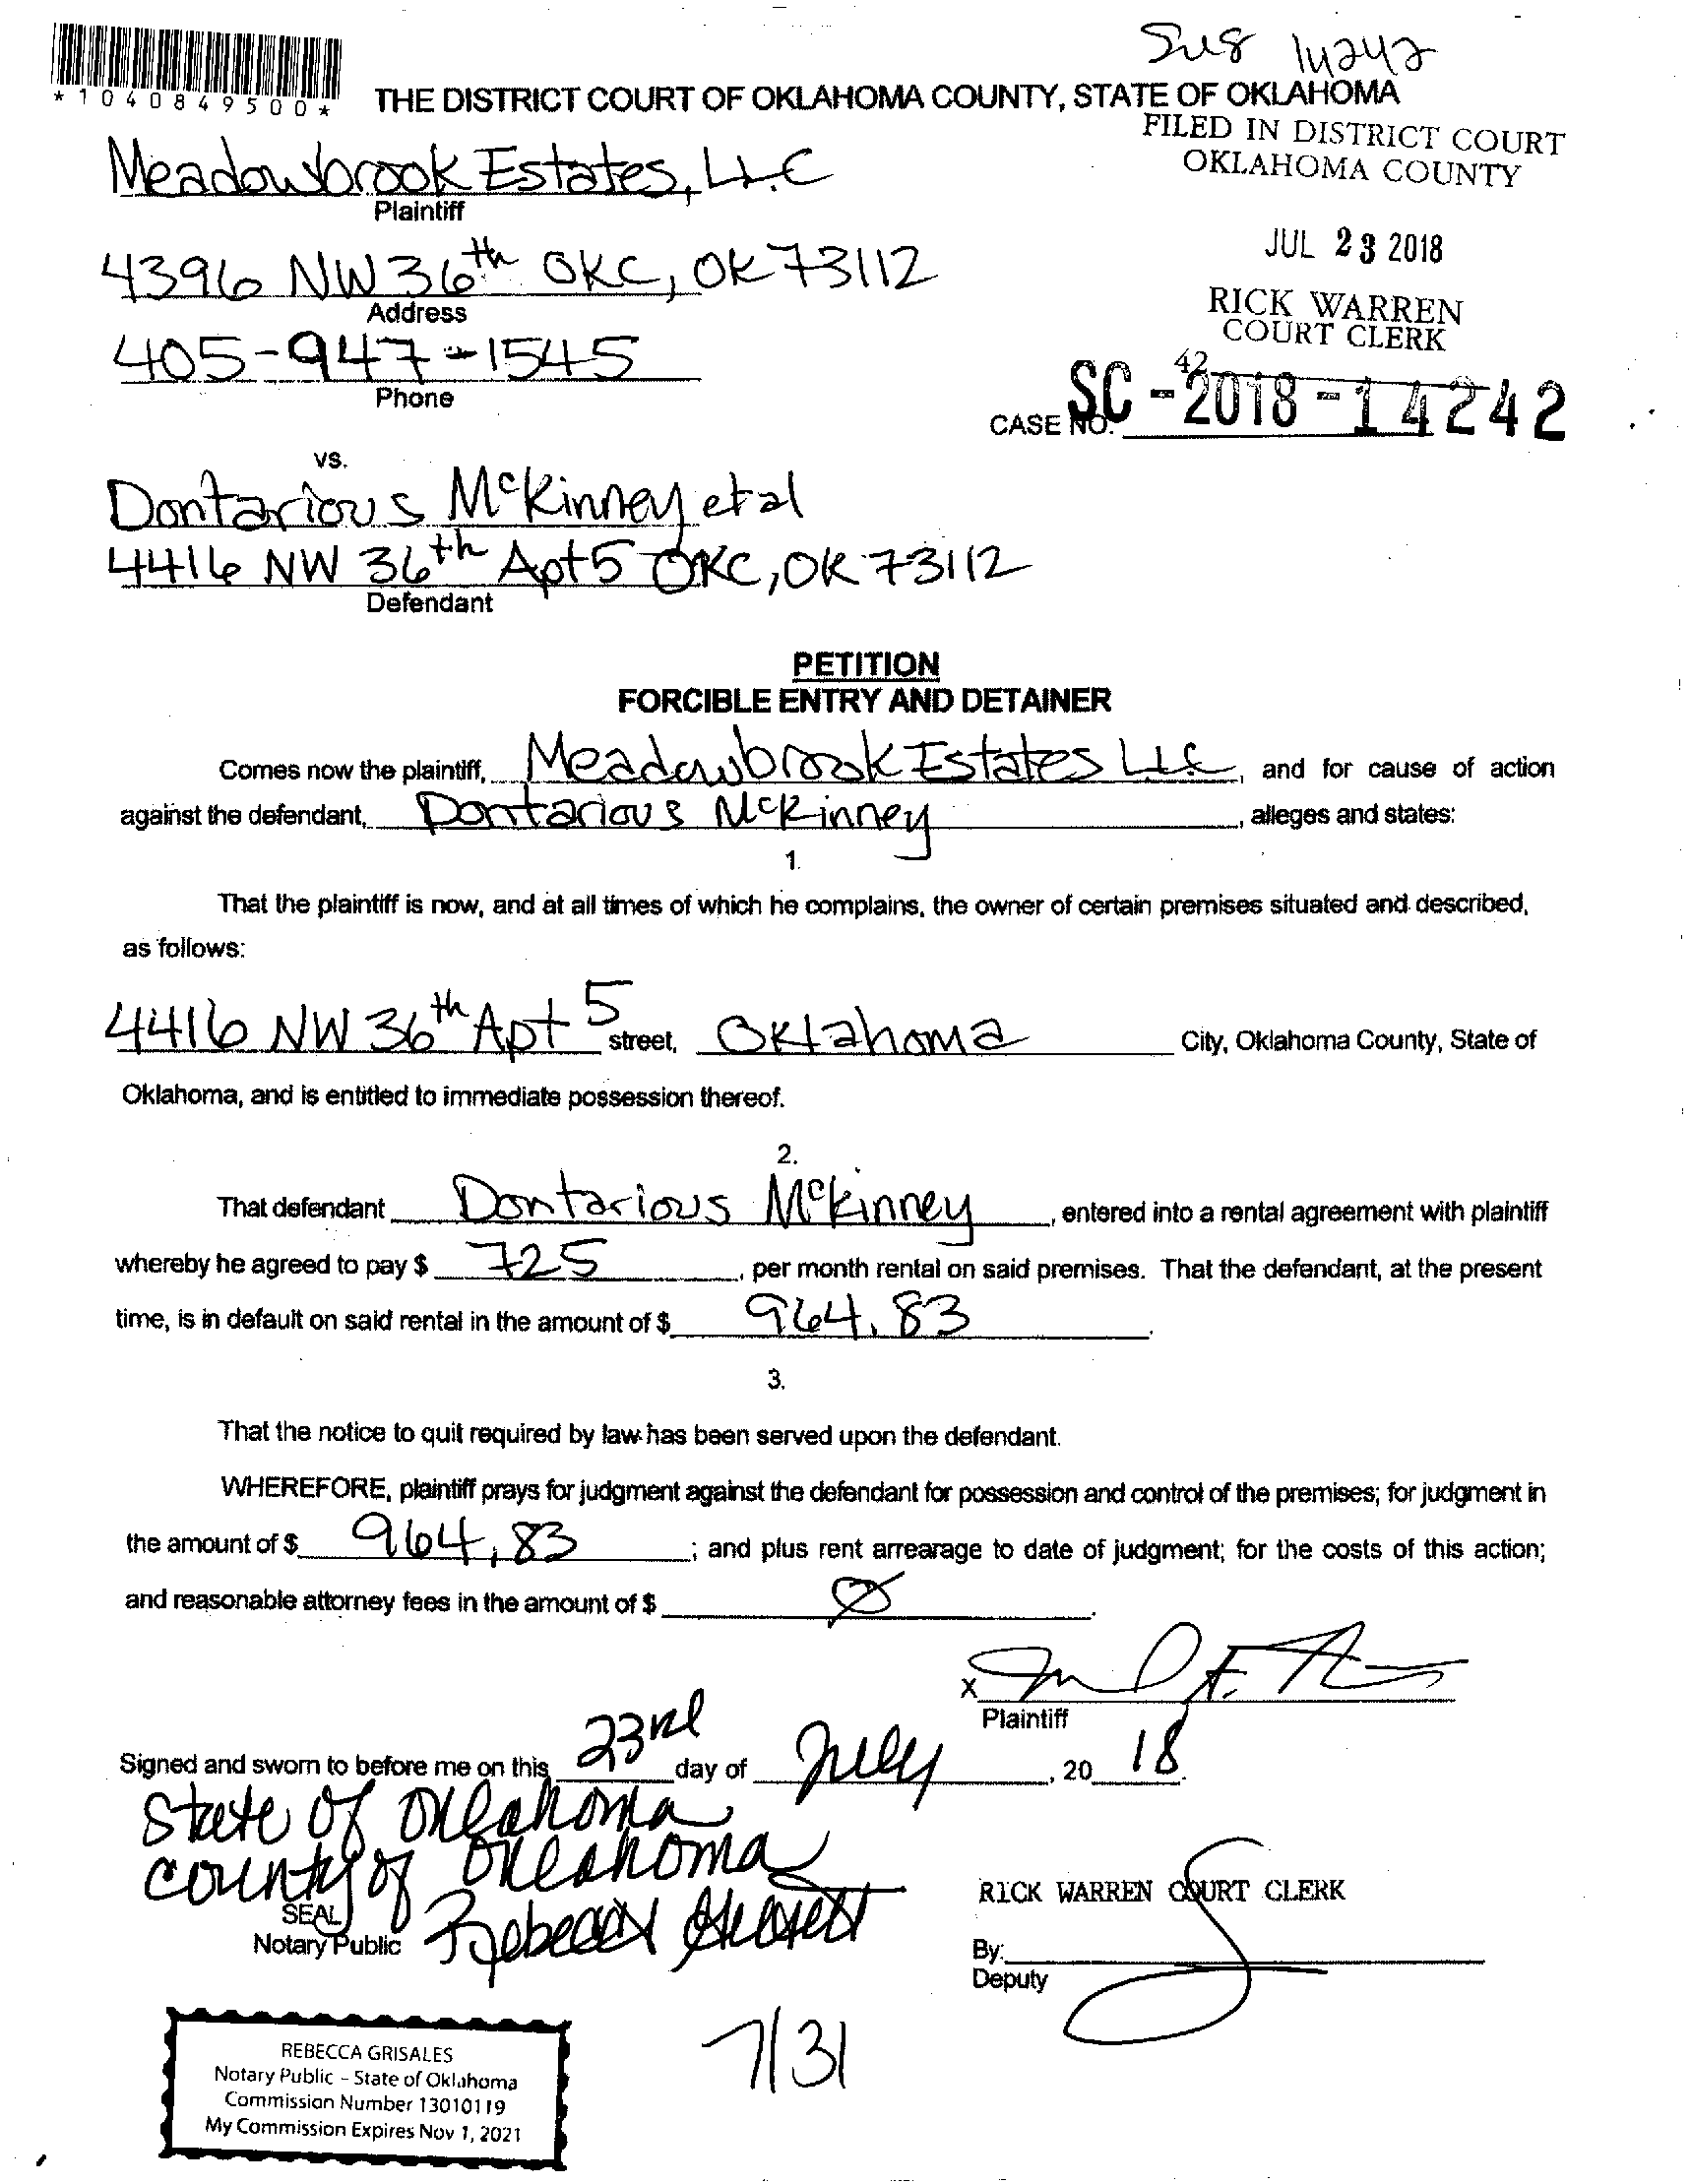 14242
*1040849500*
THE DISTRICT COURT OF OKLAHOMA COUNTY, STATE OF OKLAHOMA
FILED IN DISTRICT COURT
OKLAHOMA COUNTY
Meadowbrook Estates, LLC
Plaintiff
JUL 23 2018
4396 NW 36th OKC, OK 73112
Address
RICK WARREN
COURT CLERK
405-947-1545
Phone
42
CASE NO. SC-2018-14242
vs.
Dontarious McKinney et al
4416 NW 36th Apt 5 OKC, OK 73112
Defendant
PETITION
FORCIBLE ENTRY AND DETAINER
Comes now the plaintiff, Meadowbrook Estates LLC, and for cause of action
against the defendant, Dontarious McKinney, alleges and states:
1.
That the plaintiff is now, and at all times of which he complains, the owner of certain premises situated and described,
as follows:
4416 NW 36th Apt 5 street, Oklahoma City, Oklahoma County, State of
Oklahoma, and is entitled to immediate possession thereof.
2.
That defendant Dontarious McKinney, entered into a rental agreement with plaintiff
whereby he agreed to pay $ 725, per month rental on said premises. That the defendant, at the present
time, is in default on said rental in the amount of $ 964.83.
3.
That the notice to quit required by law has been served upon the defendant.
WHEREFORE, plaintiff prays for judgment against the defendant for possession and control of the premises; for judgment in
the amount of $ 964.83; and plus rent arrearage to date of judgment; for the costs of this action;
and reasonable attorney fees in the amount of $ Ø.
X
Plaintiff
Signed and sworn to before me on this 23rd day of July, 20 18.
State of Oklahoma
County of Oklahoma
SEAL
Notary Public Rebecca
RICK WARREN COURT CLERK
By:
Deputy
7/31
REBECCA GRISALES
Notary Public - State of Oklahoma
Commission Number 13010119
My Commission Expires Nov 1, 2021